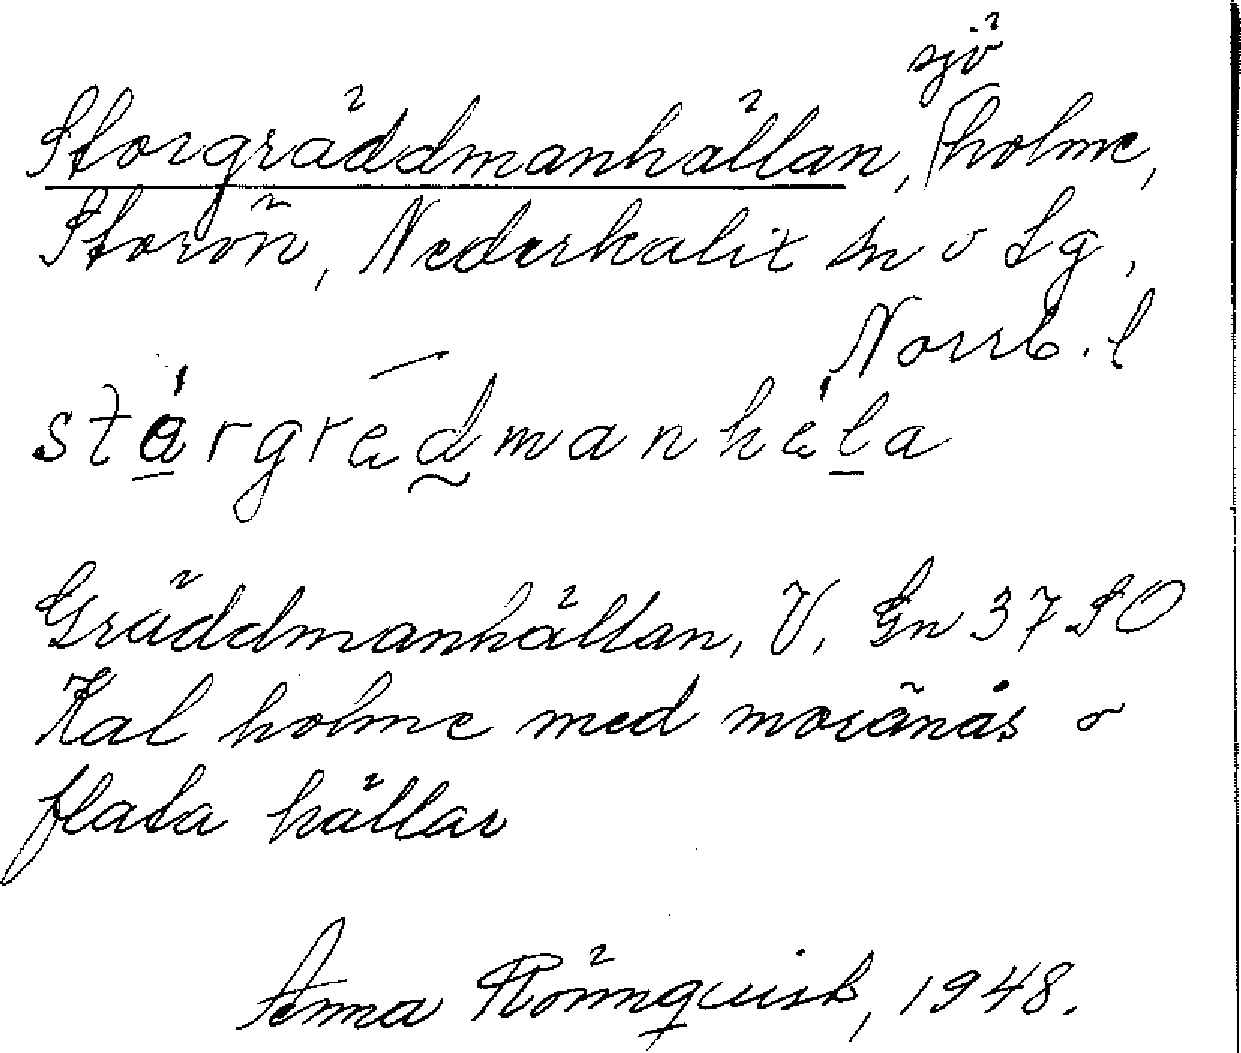 sjö
Storgräddmanhällan, holme,
Storön, Nederkalix sn o Lg,
Norrb. l
stårgrädmanhäla
Gräddmanhällan, V. Gn 37 SO
Kal holme med moränås o
flata hällar
Anna Rönnquist, 1948.